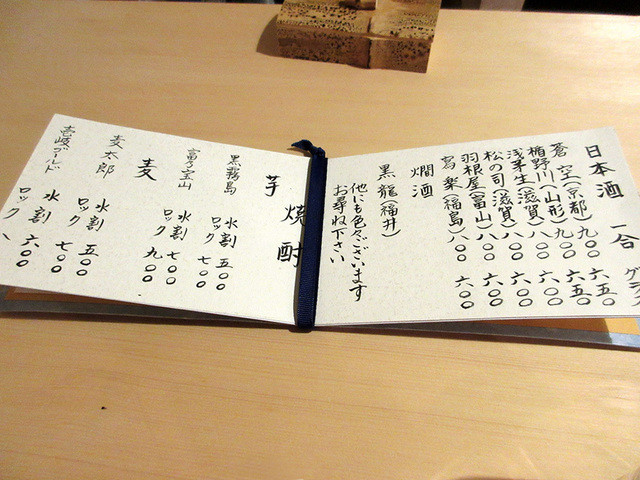 日本酒 一合 グラス
蒼空(京都) 九〇〇 六五〇
楯野川(山形) 九〇〇 六五〇
浅茅生(滋賀) 八〇〇 六〇〇
松の司(滋賀) 八〇〇 六〇〇
羽根屋(富山) 八〇〇 六〇〇
寫樂(福島) 八〇〇 六〇〇
燗酒
黒龍(福井)
他にも色々ございます
お尋ね下さい
焼酎
芋
黒霧島 水割 五〇〇
ロック 七〇〇
富乃宝山 水割 七〇〇
ロック 九〇〇
麦
麦太郎 水割 五〇〇
ロック 七〇〇
壱岐ゴールド 水割 六〇〇
ロック 八